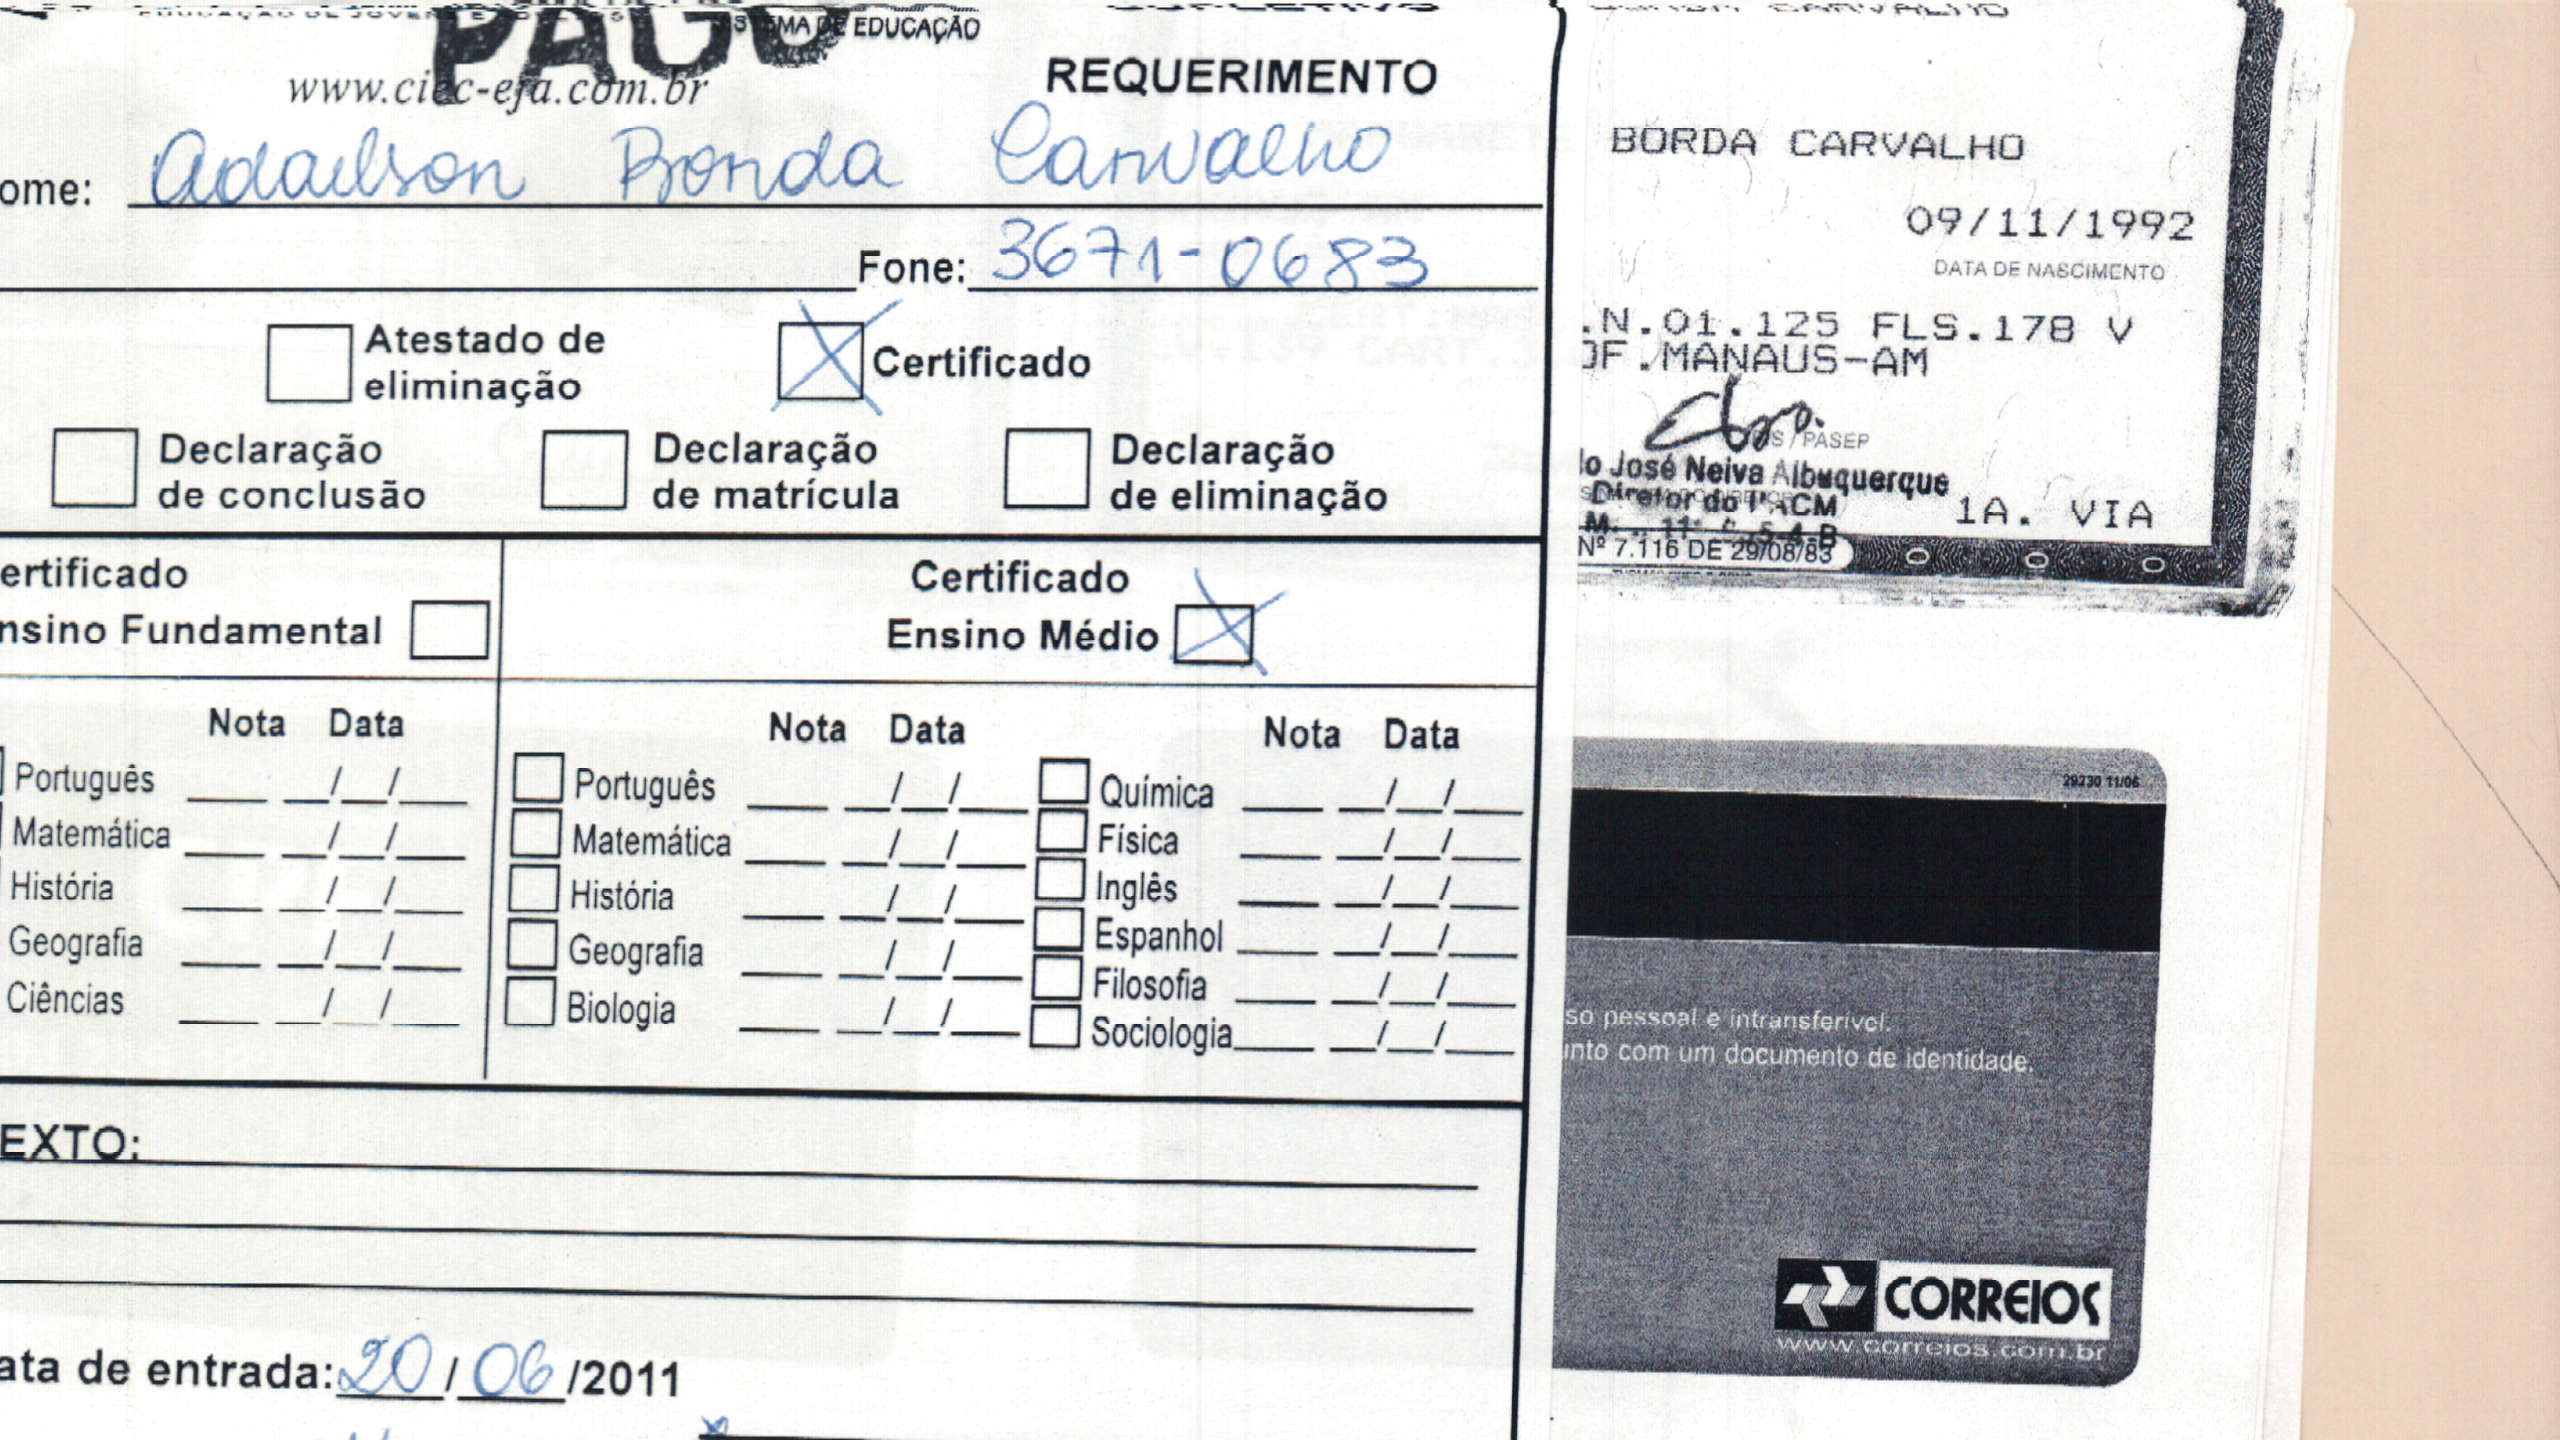 EDUCAÇÃO DE JOVENS E
PAGO
SISTEMA DE EDUCAÇÃO
www.ciec-eja.com.br
REQUERIMENTO
ome: Adailson Borda Carvalho
Fone: 3671-0683
Atestado de eliminação
Certificado
Declaração de conclusão
Declaração de matrícula
Declaração de eliminação
ertificado
nsino Fundamental
Certificado
Ensino Médio
Nota Data
Português __ __/__/__
Matemática __ __/__/__
História __ __/__/__
Geografia __ __/__/__
Ciências __ __/__/__
Nota Data
Português __ __/__/__
Matemática __ __/__/__
História __ __/__/__
Geografia __ __/__/__
Biologia __ __/__/__
Nota Data
Química __ __/__/__
Física __ __/__/__
Inglês __ __/__/__
Espanhol __ __/__/__
Filosofia __ __/__/__
Sociologia __ __/__/__
EXTO:
ata de entrada: 20/06/2011
CARVALHO
BORDA CARVALHO
09/11/1992
DATA DE NASCIMENTO
.N.01.125 FLS.178 V
OF.MANAUS-AM
PIS / PASEP
lo José Neiva Albuquerque
Diretor do I'ACM
1A. VIA
Nº 7.116 DE 29/08/83
29230 11/06
so pessoal e intransferível.
unto com um documento de identidade.
CORREIOS
www.correios.com.br